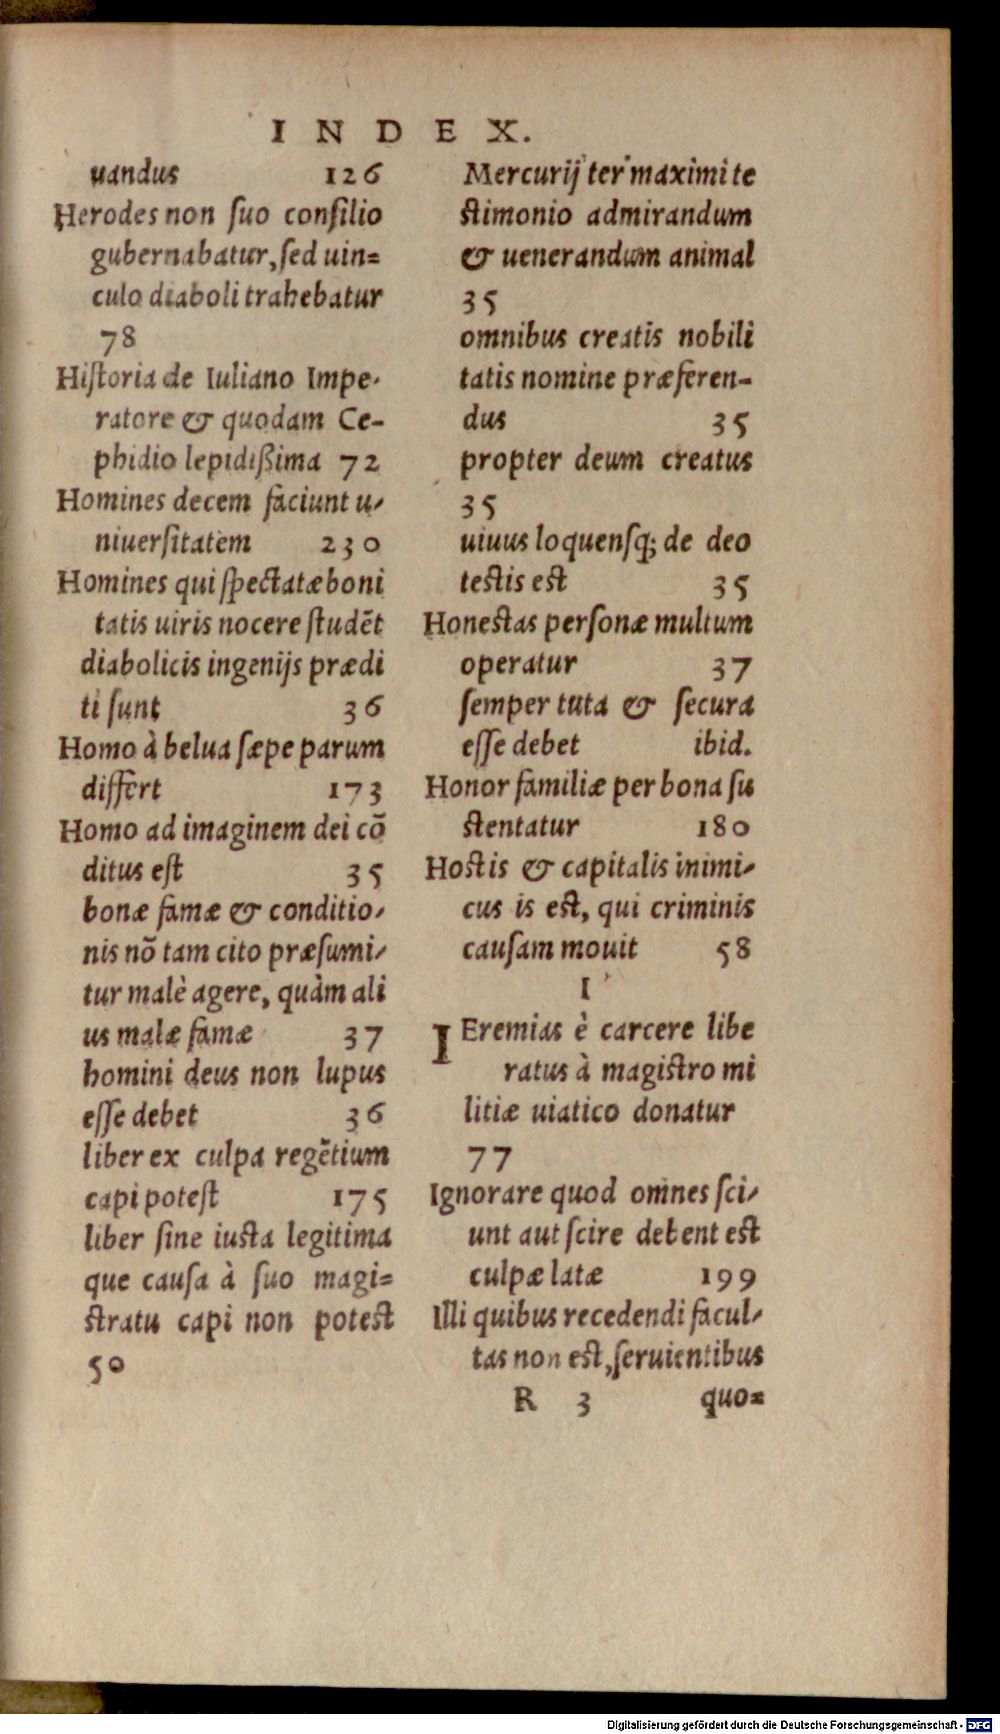 INDEX.
uandus 126
Herodes non ſuo conſilio
gubernabatur, ſed uin=
culo diaboli trahebatur
78
Hiſtoria de Iuliano Impe-
ratore & quodam Ce-
phidio lepidißima 72
Homines decem faciunt u-
niuerſitatem 230
Homines qui ſpectatæ boni
tatis uiris nocere ſtudẽt
diabolicis ingenijs prædi
ti ſunt 36
Homo à belua ſæpe parum
differt 173
Homo ad imaginem dei cõ
ditus eſt 35
bonæ famæ & conditio-
nis nõ tam cito præſumi-
tur malè agere, quàm ali
us malæ famæ 37
homini deus non lupus
eſſe debet 36
liber ex culpa regẽtium
capi poteſt 175
liber ſine iuſta legitima
que cauſa à ſuo magi=
ſtratu capi non poteſt
50
Mercurij ter maximi te
ſtimonio admirandum
& uenerandum animal
35
omnibus creatis nobili
tatis nomine præferen-
dus 35
propter deum creatus
35
uiuus loquenſq; de deo
teſtis eſt 35
Honeſtas perſonæ multum
operatur 37
ſemper tuta & ſecura
eſſe debet ibid.
Honor familiæ per bona ſu
ſtentatur 180
Hoſtis & capitalis inimi-
cus is eſt, qui criminis
cauſam mouit 58
I
IEremias è carcere libe
ratus à magiſtro mi
litiæ uiatico donatur
77
Ignorare quod omnes ſci-
unt aut ſcire debent eſt
culpæ latæ 199
Illi quibus recedendi facul-
tas non eſt, ſeruientibus
R 3 quo=
Digitalisierung gefördert durch die Deutsche Forschungsgemeinschaft - DFG